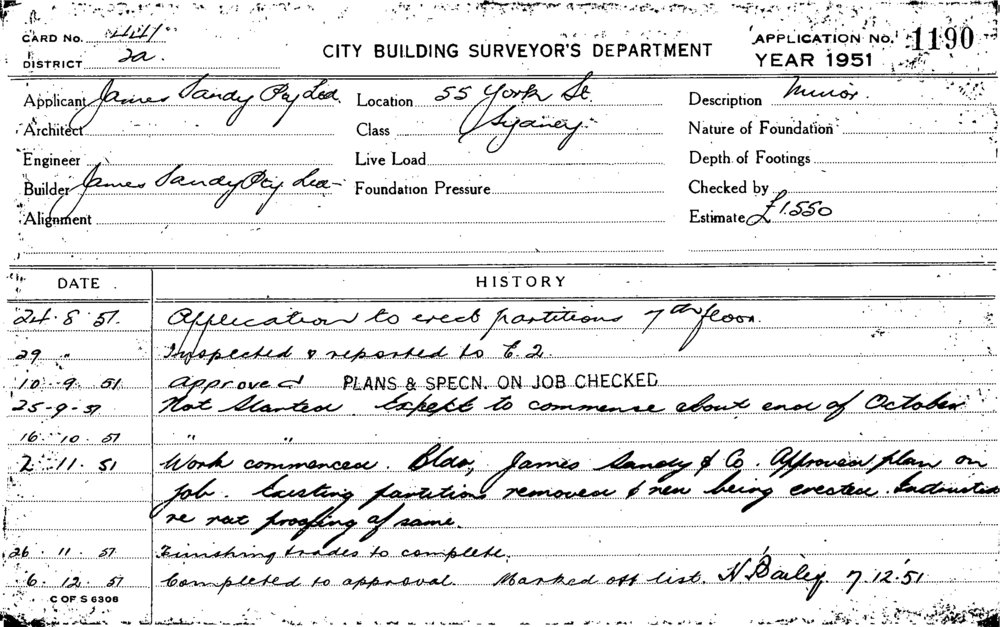 CARD No. 444
DISTRICT 2a.
CITY BUILDING SURVEYOR'S DEPARTMENT
APPLICATION No. 1190
YEAR 1951
Applicant James Sandy Pty Ltd.
Architect
Engineer
Builder James Sandy Pty Ltd
Alignment
Location 55 York St.
Class Sydney
Live Load
Foundation Pressure
Description Minor.
Nature of Foundation
Depth of Footings
Checked by
Estimate £1550
DATE HISTORY
24.8.51. Application to erect partitions 7th floor.
29 " Inspected & reported to
10.9.51 Approved PLANS & SPECN. ON JOB CHECKED
25-9-51 Not Started. Expect to commense about end of October
16.10.51 " "
2.11.51 Work commenced. Bldr, James Sandy & Co. Approved plan on
job. Existing partitions removed & new being erected.
re rat proofing of same.
26.11.51 Finishing trades to complete.
6.12.51 Completed to approval. Marked off list. N Bailey. 7.12.51
C OF S 6308